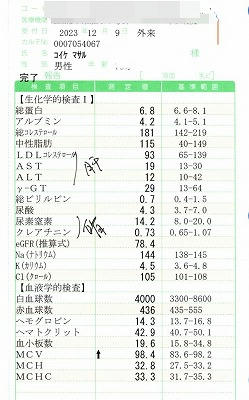 コード
医療機関
受付日 2023 12 9 外来
カルテNo
0007054067
コイケ マサル 様
男性
完了
検査項目 測定値 基準範囲
【生化学的検査Ⅰ】
総蛋白 6.8 6.6-8.1
アルブミン 4.2 4.1-5.1
総コレステロール 181 142-219
中性脂肪 115 40-149
LDLコレステロール 93 65-139
AST 19 13-30
ALT 12 10-42
γ-GT 29 13-64
肝
総ビリルビン 0.7 0.4-1.5
尿酸 4.3 3.7-7.0
尿素窒素 14.2 8.0-20.0
クレアチニン 0.73 0.65-1.07
eGFR(推算式) 78.4
Na(ナトリウム) 144 138-145
K(カリウム) 4.5 3.6-4.8
Cl(クロール) 105 101-108
【血液学的検査】
白血球数 4000 3300-8600
赤血球数 436 435-555
ヘモグロビン 14.3 13.7-16.8
ヘマトクリット 42.9 40.7-50.1
血小板数 19.6 15.8-34.8
MCV ↑ 98.4 83.6-98.2
MCH 32.8 27.5-33.2
MCHC 33.3 31.7-35.3